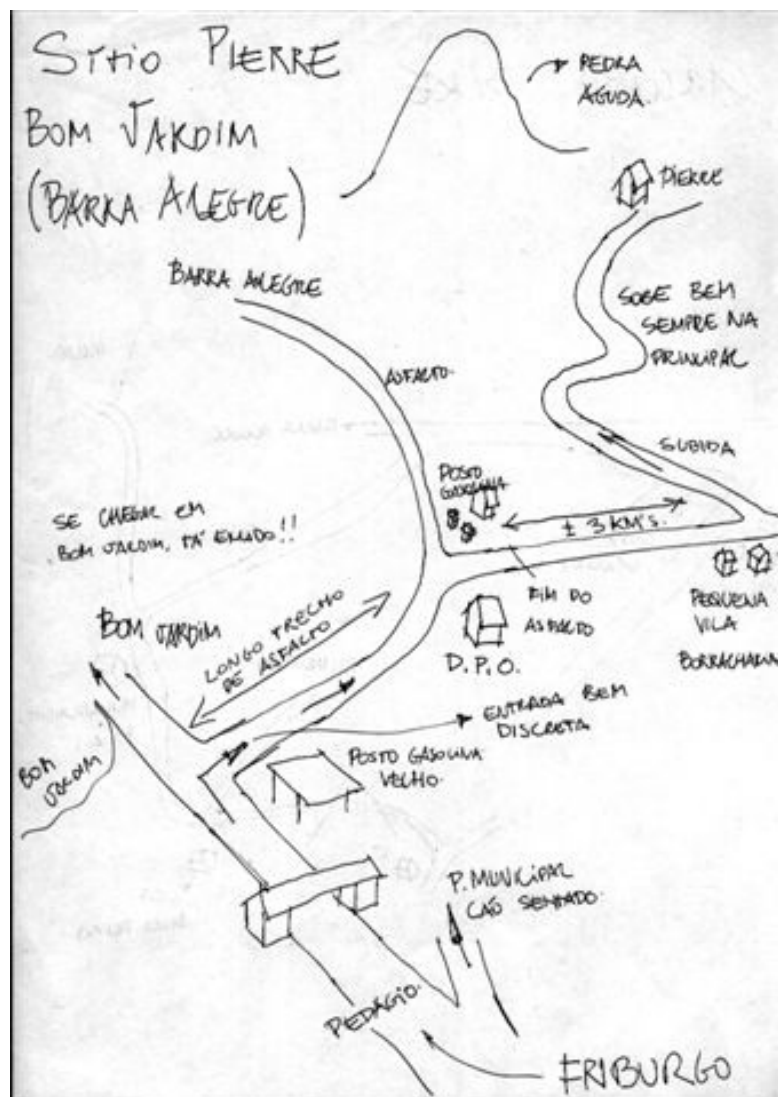 Sítio PIERRE
BOM JARDIM
(BARRA ALEGRE)
PEDRA
AGUDA.
PIERRE
BARRA ALEGRE
SOBE BEM
SEMPRE NA
PRINCIPAL
ASFALTO.
SUBIDA
POSTO
GASOLINA
± 3 KM's.
SE CHEGAR EM
BOM JARDIM, TÁ ERRADO!!
FIM DO
ASFALTO
PEQUENA
VILA
BORRACHARIA
D.P.O.
BOM JARDIM
LONGO TRECHO
DE ASFALTO
ENTRADA BEM
DISCRETA
BOM
JARDIM
POSTO GASOLINA
VELHO.
P. MUNICIPAL
CÃO SENTADO.
PEDÁGIO.
FRIBURGO